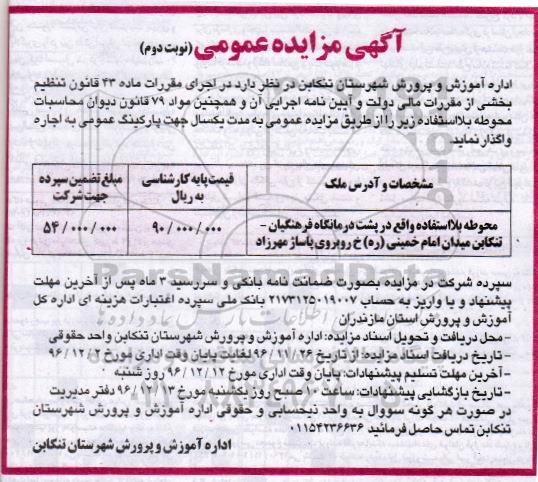 آگهی مزایده عمومی (نوبت دوم)
اداره آموزش و پرورش شهرستان تنکابن در نظر دارد در اجرای مقررات ماده ۴۳ قانون تنظیم
بخشی از مقررات مالی دولت و آیین نامه اجرایی آن و همچنین مواد ۷۹ قانون دیوان محاسبات
محوطه بلااستفاده زیر را از طریق مزایده عمومی به مدت یکسال جهت پارکینگ عمومی به اجاره
واگذار نماید.
مشخصات و آدرس ملک
قیمت پایه کارشناسی به ریال
مبلغ تضمین سپرده جهت شرکت
محوطه بلااستفاده واقع در پشت درمانگاه فرهنگیان –
تنکابن میدان امام خمینی (ره) خ روبروی پاساژ مهرزاد
۹۰/۰۰۰/۰۰۰
۵۴/۰۰۰/۰۰۰
سپرده شرکت در مزایده بصورت ضمانت نامه بانکی و سررسید ۳ ماه پس از آخرین مهلت
پیشنهاد و یا واریز به حساب ۲۱۷۳۱۲۵۰۱۹۰۰۷ بانک ملی سپرده اعتبارات هزینه ای اداره کل
آموزش و پرورش استان مازندران
– محل دریافت و تحویل اسناد مزایده: اداره آموزش و پرورش شهرستان تنکابن واحد حقوقی
– تاریخ دریافت اسناد مزایده: از تاریخ ۹۶/۱۱/۲۶ لغایت پایان وقت اداری مورخ ۹۶/۱۲/۲
– آخرین مهلت تسلیم پیشنهادات: پایان وقت اداری مورخ ۹۶/۱۲/۱۲ روز شنبه
– تاریخ بازگشایی پیشنهادات: ساعت ۱۰ صبح روز یکشنبه مورخ ۹۶/۱۲/۱۳ دفتر مدیریت
در صورت هر گونه سووال به واحد ذیحسابی و حقوقی اداره آموزش و پرورش شهرستان
تنکابن تماس حاصل فرمائید ۰۱۱۵۴۲۳۶۶۳۶
اداره آموزش و پرورش شهرستان تنکابن
ParsNamadData